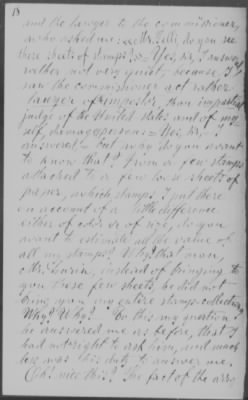 18
and the lawyer to the commissioner,
who asked me: "Mr. Salli, do you see
these sheets of stamps?" "Yes, sir," I answered
rather not very quiet, because I
saw the commissioner act rather
lawyer of impostor, than impartial
judge of the United States and of my
self, damaged person: "Yes, sir,
answered — but why do you want
to know that? from a few stamps
attached to a few loose sheets of
paper, which stamps I put there
on account of a little difference
either of color or of size, do you
want to estimate all the value of
all my stamps? Why? that man,
Mr. instead of bringing to
you these few sheets, he did not
bring you my entire stamps collection
Why? Why? To this my question
he answered me as before, that I
had not right to ask him, and much
less was his duty to answer me.
Oh! nice this? The fact of the